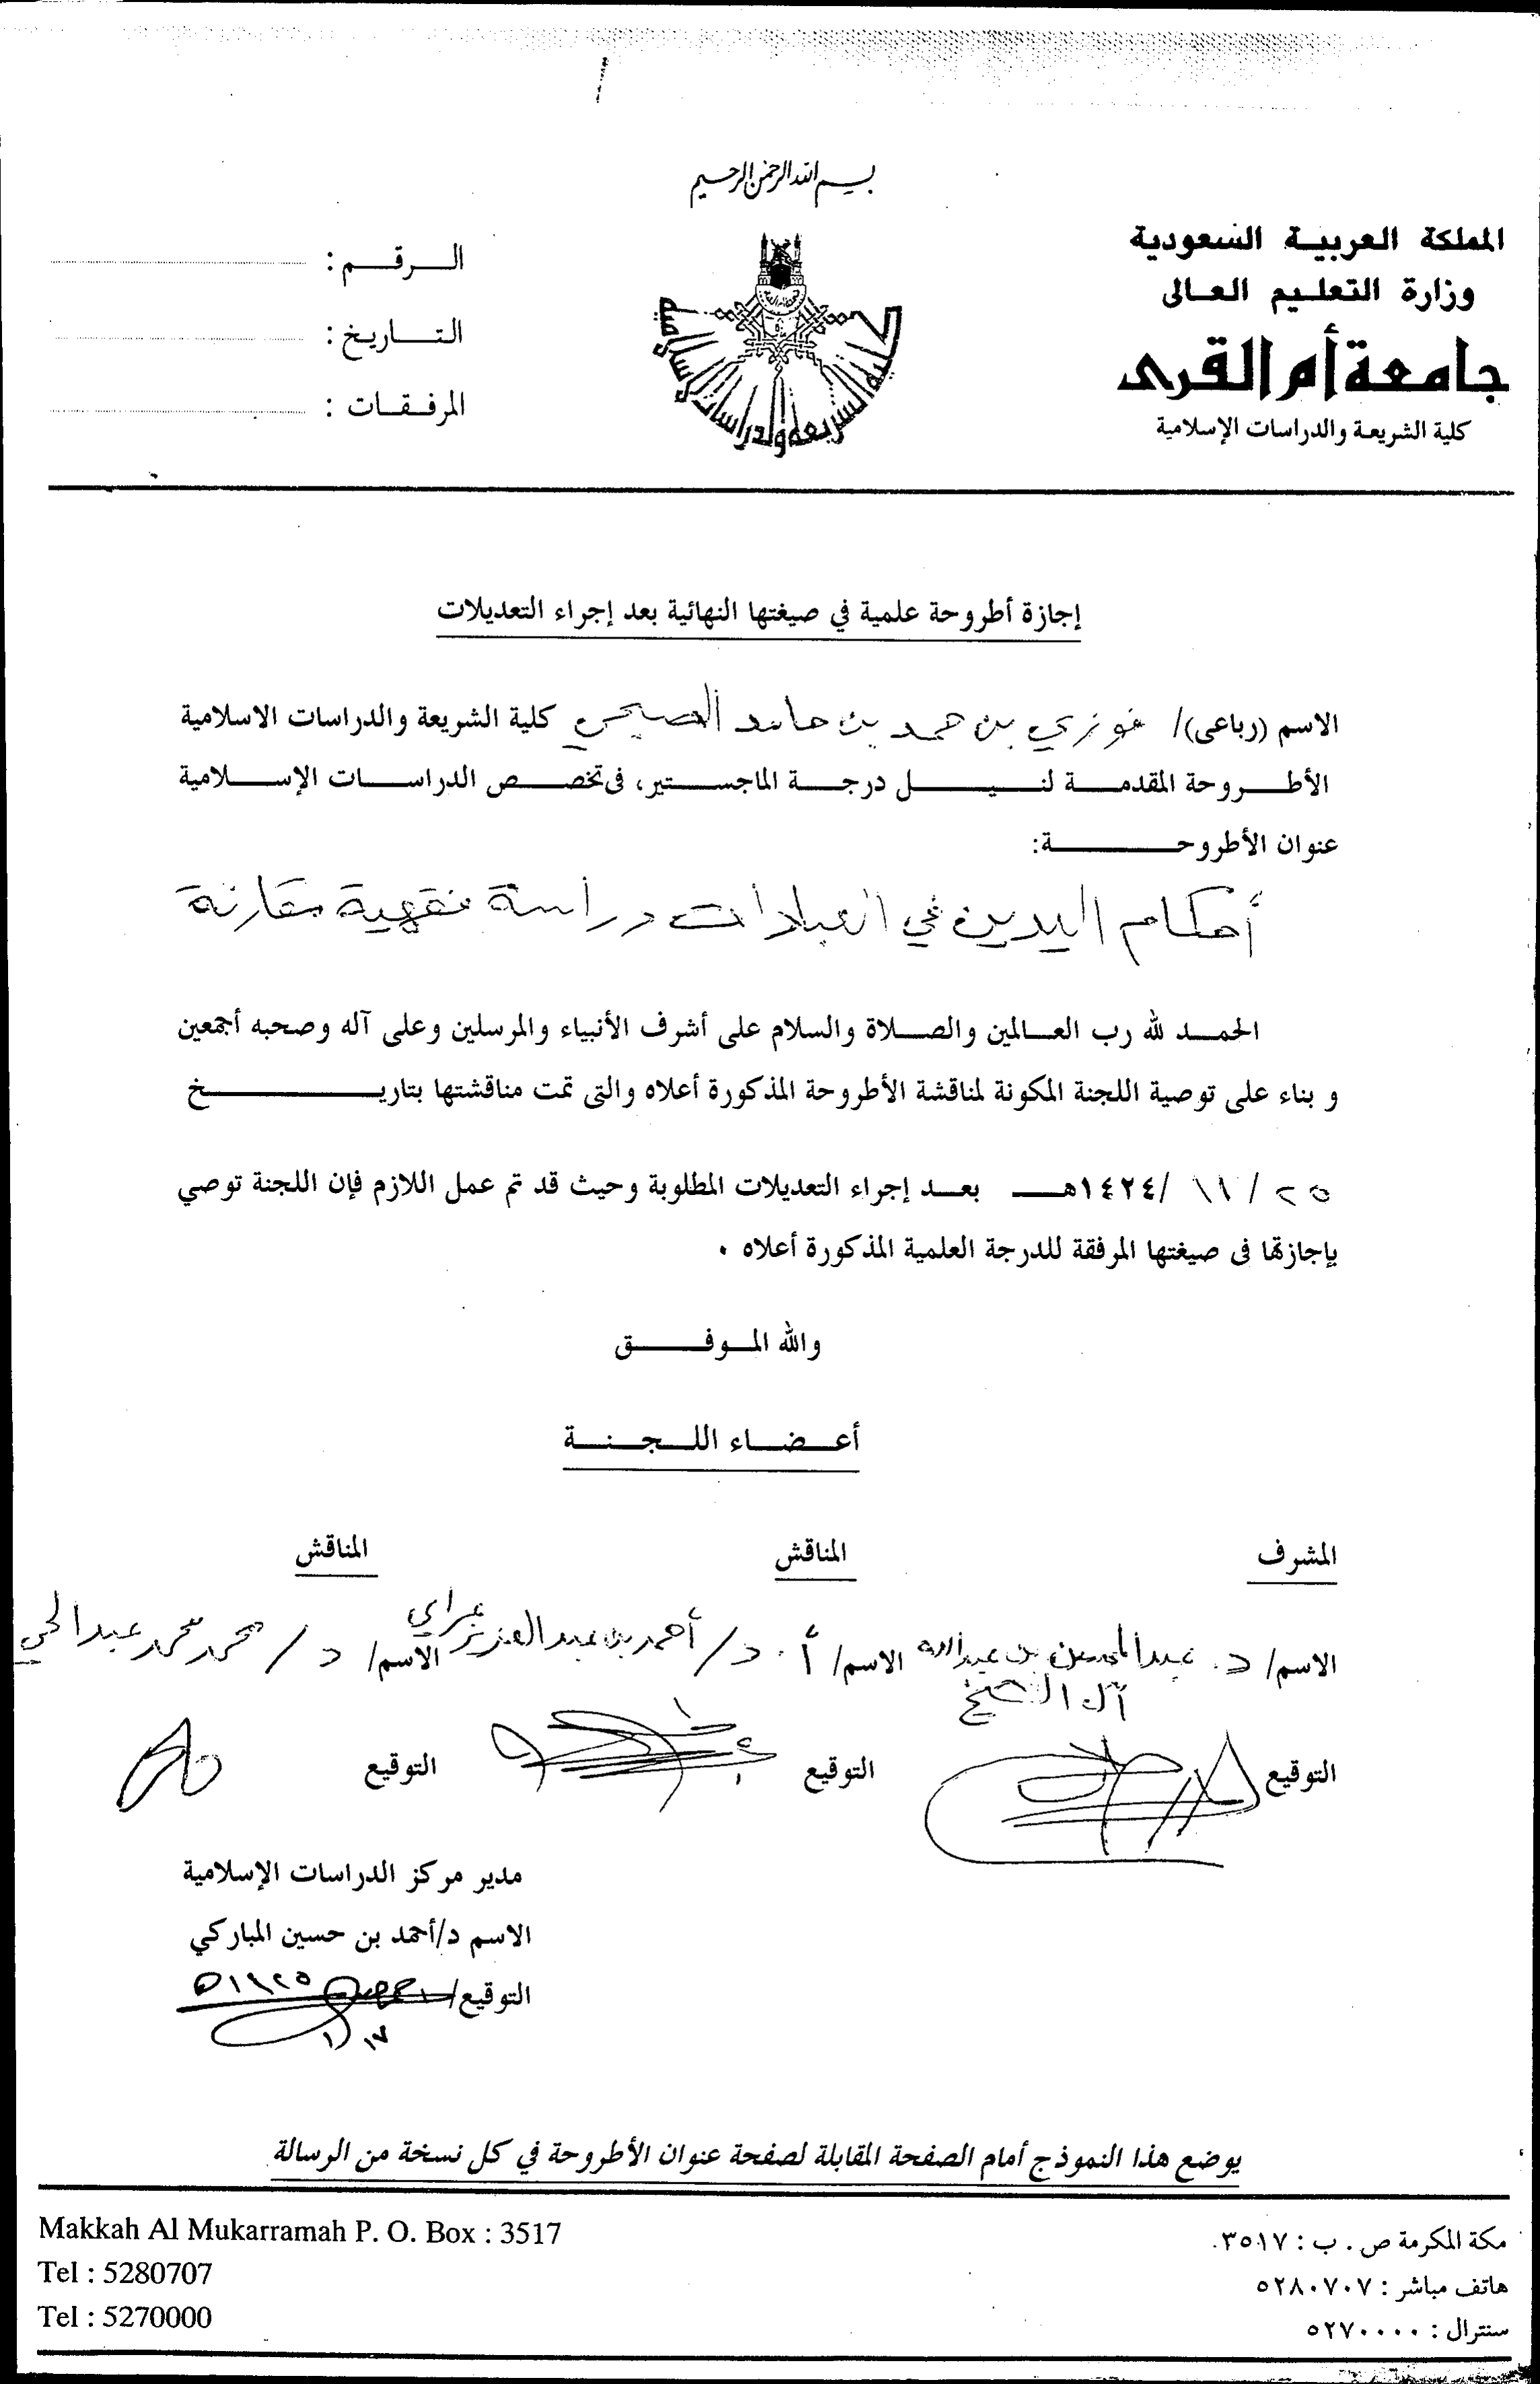 بسم الله الرحمن الرحيم
المملكة العربية السعودية
وزارة التعليم العالى
جامعة أم القرى
كلية الشريعة والدراسات الإسلامية
كلية الشريعة والدراسات الإسلامية
الرقم :
التاريخ :
المرفقات :
إجازة أطروحة علمية في صيغتها النهائية بعد إجراء التعديلات
الاسم (رباعى)/ فوزي بن حمد بن حامد الصبحي كلية الشريعة والدراسات الاسلامية
الأطروحة المقدمة لنيل درجة الماجستير، فى تخصص الدراسات الإسلامية
عنوان الأطروحة:
أحكام اليدين في العبادات دراسة فقهية مقارنة
الحمد لله رب العالمين والصلاة والسلام على أشرف الأنبياء والمرسلين وعلى آله وصحبه أجمعين
و بناء على توصية اللجنة المكونة لمناقشة الأطروحة المذكورة أعلاه والتى تمت مناقشتها بتاريخ
٢٥ / ١١ /١٤٢٤هـ بعد إجراء التعديلات المطلوبة وحيث قد تم عمل اللازم فإن اللجنة توصي
بإجازتها فى صيغتها المرفقة للدرجة العلمية المذكورة أعلاه .
والله الموفق
أعضاء اللجنة
المشرف
المناقش
المناقش
الاسم/ د. عبدالمحسن بن عبدالله
آل الشيخ
الاسم/ أ. د/ أحمد بن عبدالعزيز عرابي
الاسم/ د / محمد محمد عبدالحي
التوقيع
التوقيع
التوقيع
مدير مركز الدراسات الإسلامية
الاسم د/أحمد بن حسين المباركي
التوقيع/
يوضع هذا النموذج أمام الصفحة المقابلة لصفحة عنوان الأطروحة في كل نسخة من الرسالة
مكة المكرمة ص . ب : ٣٥١٧
هاتف مباشر : ٥٢٨٠٧٠٧
سنترال : ٥٢٧٠٠٠٠
Makkah Al Mukarramah P. O. Box : 3517
Tel : 5280707
Tel : 5270000